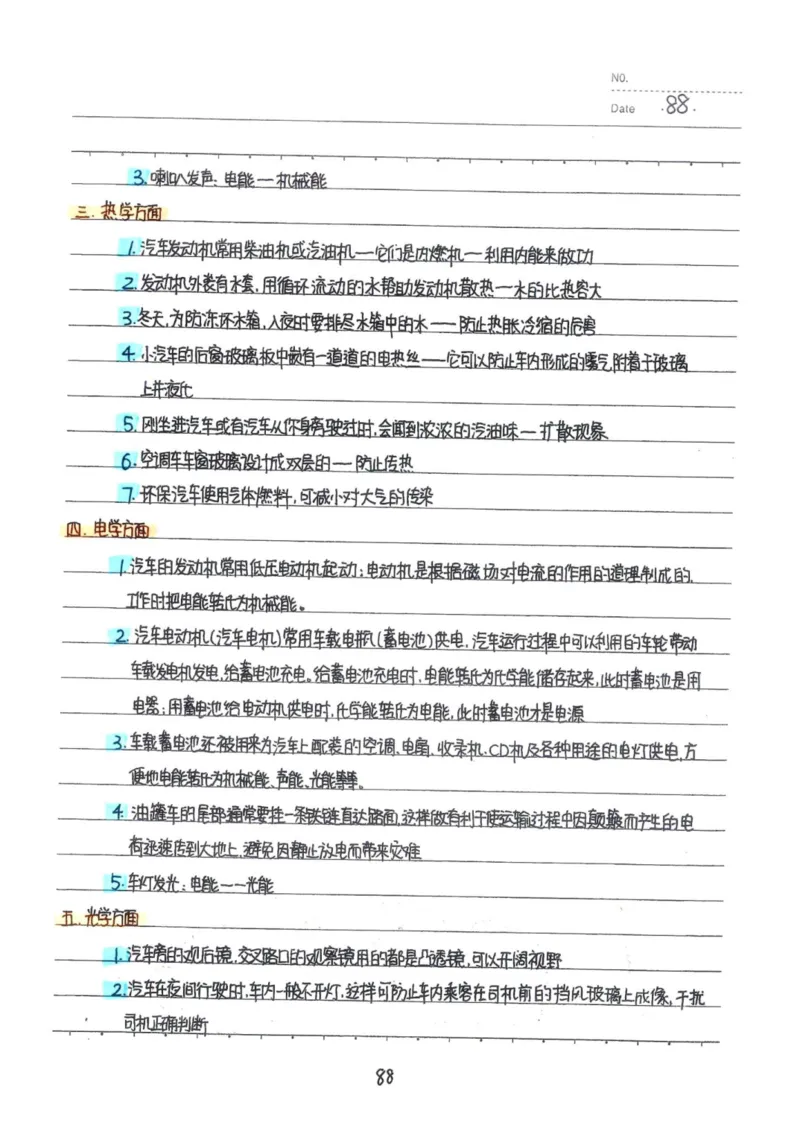 NO.
Date ·88·
3.喇叭发声:电能一机械能
三.热学方面
1.汽车发动机常用柴油机或汽油机一它们是内燃机一利用内能来做功
2.发动机外装有水套,用循环流动的水帮助发动机散热一水的比热容大
3.冬天,为防冻坏水箱,入夜时要排尽水箱中的水——防止热胀冷缩的危害
4.小汽车的后窗玻璃板中嵌有一道道的电热丝——它可以防止车内形成的雾气附着于玻璃
上并液化
5.刚坐进汽车或有汽车从你身旁驶过时,会闻到浓浓的汽油味一扩散现象
6.空调车车窗玻璃设计成双层的一防止传热
7.环保汽车使用气体燃料,可减小对大气的传染
四.电学方面
1.汽车的发动机常用低压电动机起动;电动机是根据磁场对电流的作用的道理制成的,
工作时把电能转化为机械能。
2.汽车电动机(汽车电机)常用车载电瓶(蓄电池)供电,汽车运行过程中可以利用的车轮带动
车载发电机发电,给蓄电池充电。给蓄电池充电时,电能转化为化学能储存起来,此时蓄电池是用
电器;用蓄电池给电动机供电时,化学能转化为电能,此时蓄电池才是电源
3.车载蓄电池还被用来为汽车上配装的空调、电扇、收录机、CD机及各种用途的电灯供电,方
便地电能转化为机械能、声能、光能等等。
4.油罐车的尾部通常要挂一条铁链直达路面,这样做有利于使运输过程中因颠簸而产生的电
荷迅速传到大地上,避免因静止放电而带来灾难
5.车灯发光:电能——光能
五.光学方面
1.汽车旁的观后镜,交叉路口的观察镜用的都是凸透镜,可以开阔视野
2.汽车在夜间行驶时,车内一般不开灯,这样可防止车内乘客在司机前的挡风玻璃上成像,干扰
司机正确判断
88